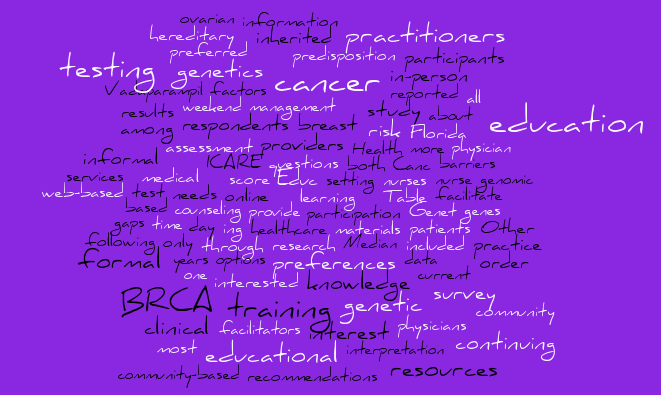 ovarian information
hereditary inherited practitioners
preferred predisposition participants
testing genetics cancer in-person
Vadaparampil factors reported all
results weekend management study about education
among respondents breast risk Florida
assessment providers Health more physician
informal ICARE questions both Canc barriers
services medical score Educ setting nurses nurse genomic
web-based test needs online learning Table facilitate
based counseling provide participation Genet genes
gaps time day ing healthcare materials patients Other
following only through research Median included practice
formal years options preferences data order
one interested knowledge current
BRCA training genetic survey community
clinical facilitators interest physicians
most educational interpretation continuing
community-based recommendations resources